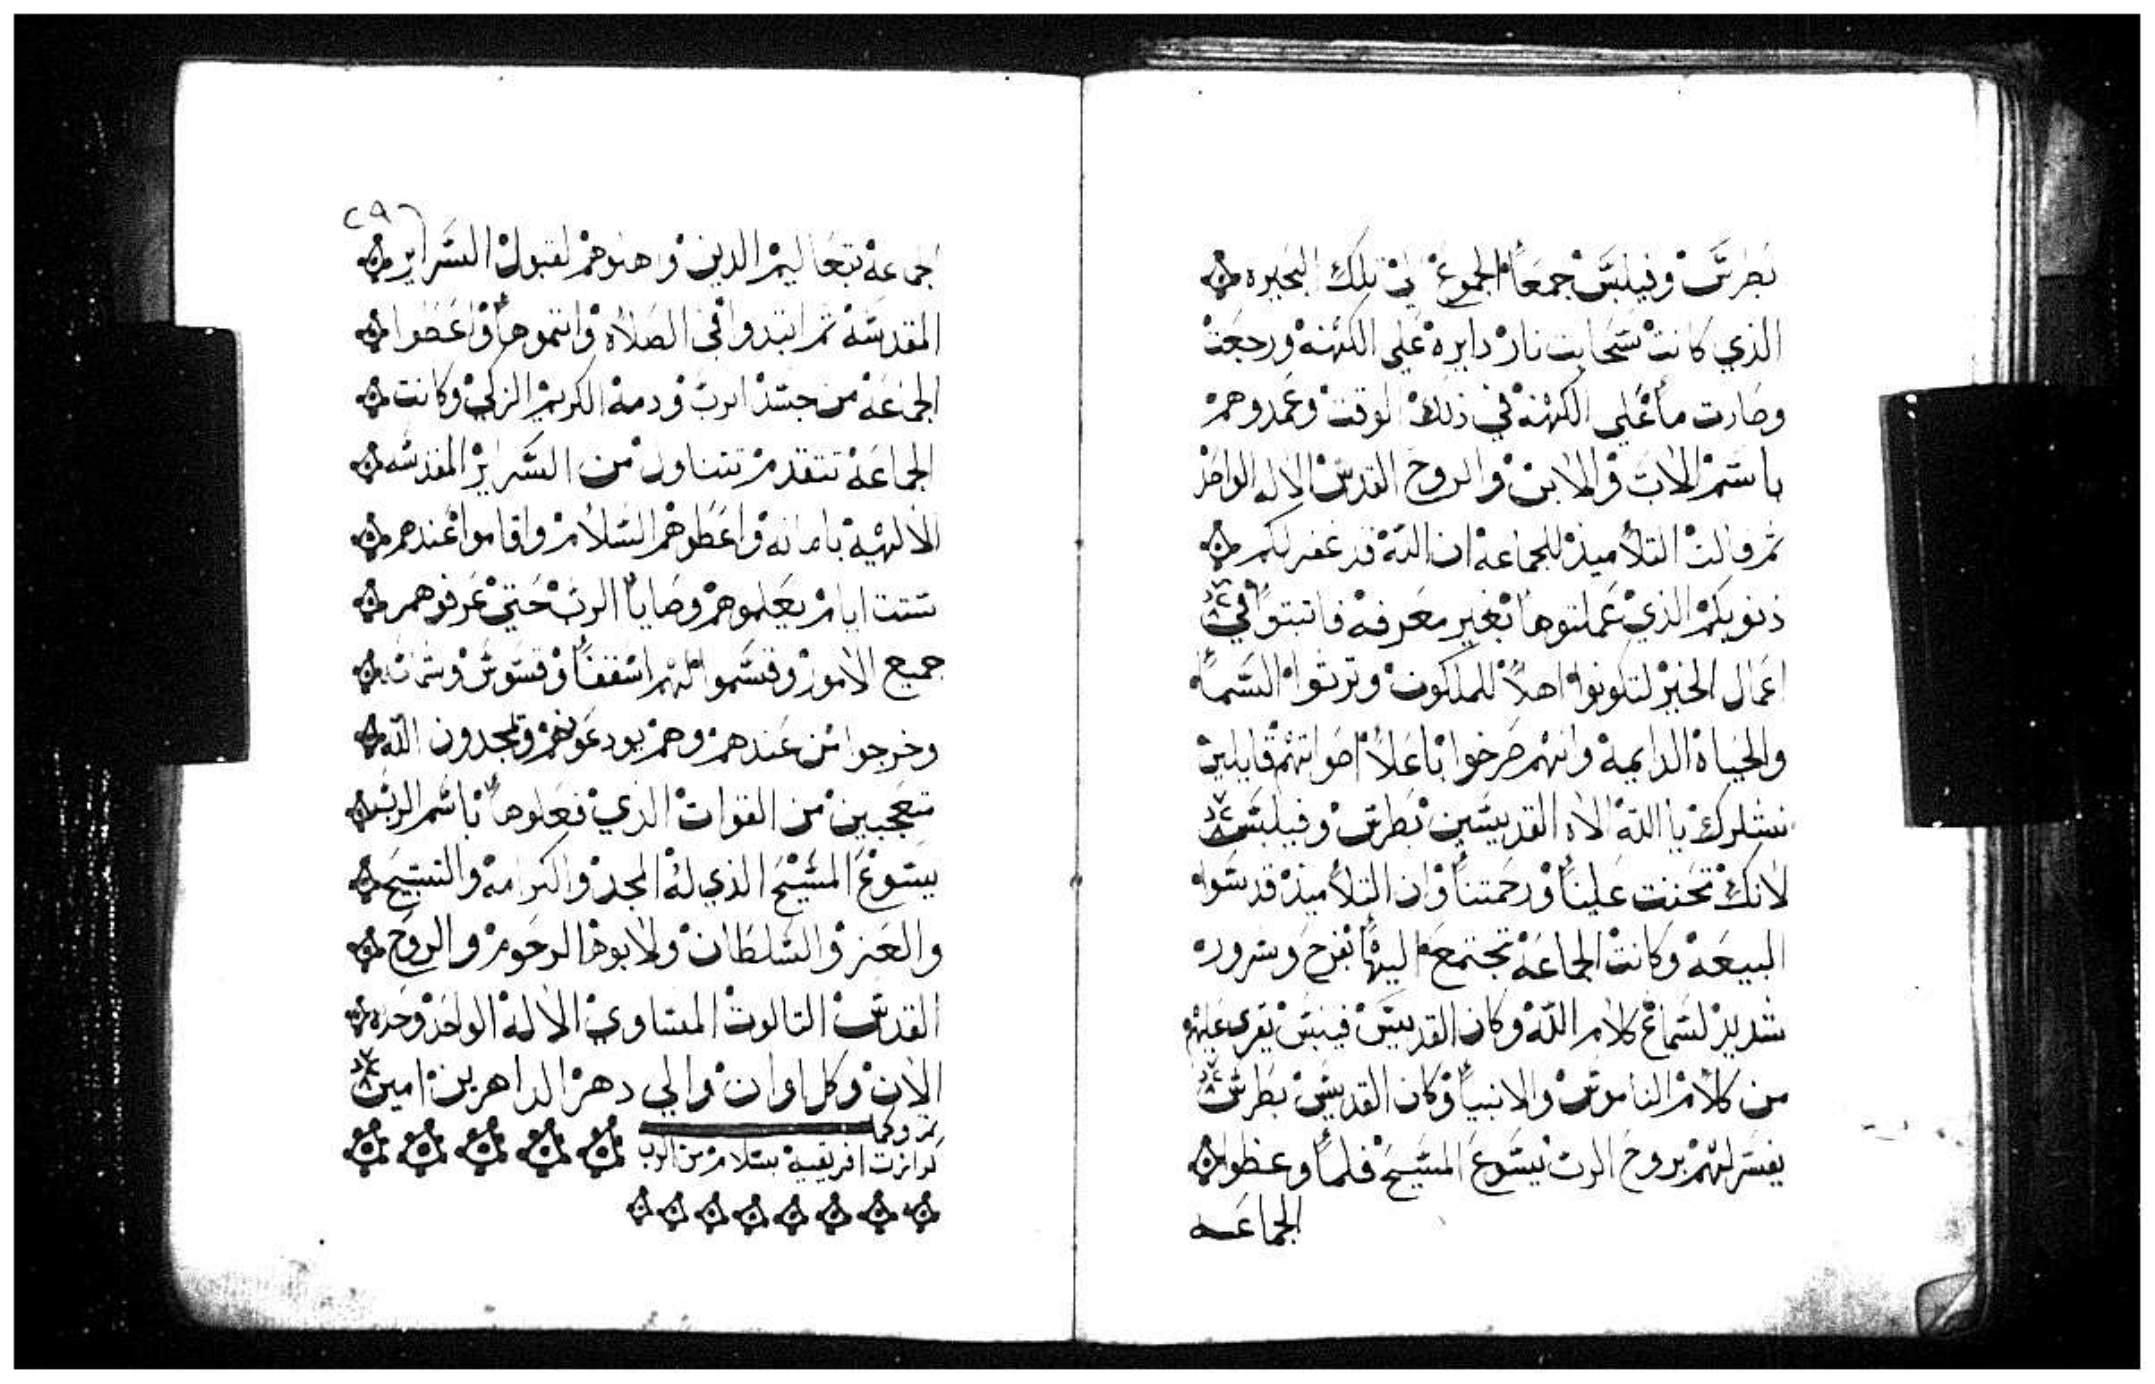 بطرس وفيلبس جمعا الجموع الي تلك البحيره
الذي كانت سحابت نار دايره علي الكهنه ورجعت
وصارت ما علي الكهنه في ذلك الوقت وعمدوهم
باسم الاب والابن والروح القدس الاله الواحد
ثم قالت التلاميذ للجماعه ان الله قد غفر لكم
ذنوبكم الذي عملتوها بغير معرفه فاتبتوا في
اعمال الخير لتكونوا اهلا للملكوت وترثوا السما
والحياه الدايمه وانهم صرخوا باعلا اصواتهم قايلين
نشكرك يا الله الاه القديسين بطرس وفيلبس
لانك تحننت علينا ورحمتنا وان التلاميذ قدسوا
البيعه وكانت الجماعه تجتمع اليها بفرح وسرور
شديد لسماع كلام الله وكان القديس فيلبس يقري عليهم
من كلام الناموس والانبيا وكان القديس بطرس
يفسر لهم بروح الرب يسوع المسيح فلما وعظوا
الجماعه
٢٩
الجماعه تبعاليم الدين وهنوهم لقبول السراير
المقدسه ثم ابتدوا في الصلاه واتموها واعطوا
الجماعه من جسد الرب ودمه الكريم الزكي وكانت
الجماعه تتقدم تتناول من السراير المقدسه
الالهيه بامانه واعطوهم السلام واقاموا عندهم
ستت ايام يعلموهم وصايا الرب حتي عرفوهم
جميع الامور وقسموا لهم اسقفا وقسوس وشمامسه
وخرجوا من عندهم وهم يودعونهم ويمجدون الله
متعجبين من القوات الذي فعلوها باسم الرب
يسوع المسيح الذي له المجد والكرامه والتسبيح
والعز والسلطان ولابوه الرحوم والروح
القدس التالوت المساوي الاله الواحد وحده
الان وكل اوان والي دهر الداهرين امين
تم وكمل
كرازت افريقيه بسلام من الرب